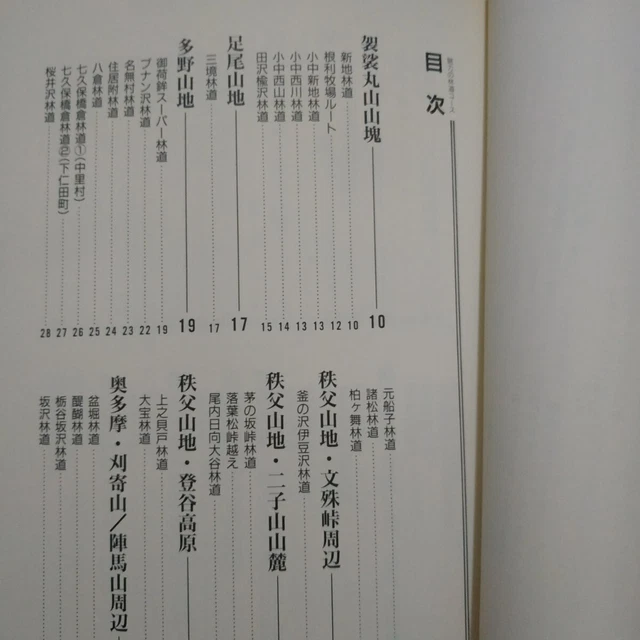 目次
袈裟丸山山塊 10
新地林道 10
根利牧場ルート 12
小中新地林道 13
小中西川林道 13
小中西山林道 14
田沢楡沢林道 15
足尾山地 17
三境林道 17
多野山地 19
御荷鉾スーパー林道 19
ブナン沢林道 22
名無村林道 23
住居附林道 24
八倉林道 25
七久保橋倉林道①(中里村) 26
七久保橋倉林道②(下仁田町) 27
桜井沢林道 28
元船子林道
諸松林道
柏ヶ舞林道
秩父山地・文殊峠周辺
釜の沢伊豆沢林道
秩父山地・二子山山麓
茅の坂峠林道
落葉松峠越え
尾内日向大谷林道
秩父山地・登谷高原
上之貝戸林道
大宝林道
奥多摩・刈寄山/陣馬山周辺
盆堀林道
醍醐林道
栃谷坂沢林道
坂沢林道